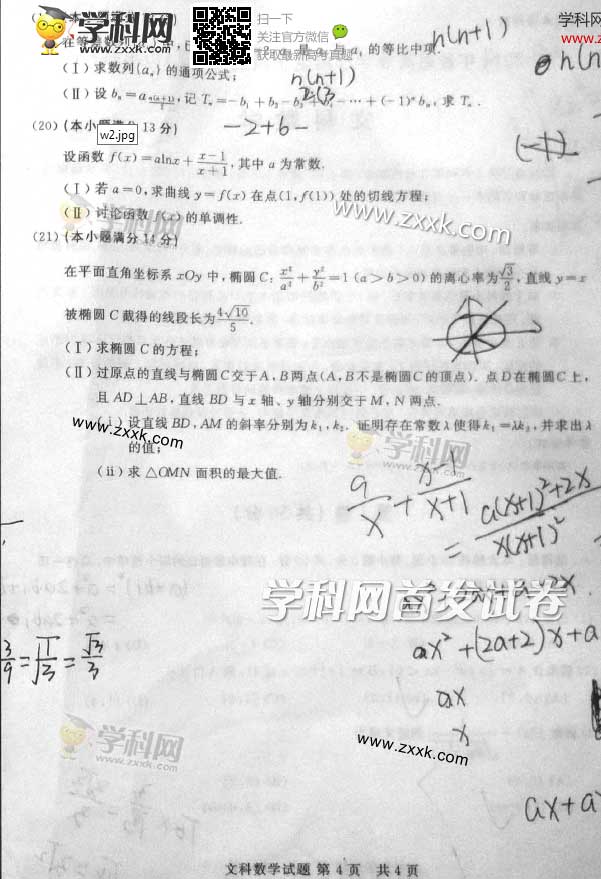 学科网
www.zxxk.com
扫一下
关注官方微信
获取最新高考真题
学科网
www.zxxk
n(n+1)
的等比中项.
(Ⅰ)求数列{aₙ}的通项公式;
n(n+1)
(Ⅱ)设 bₙ=a_{n(n+1)/2},记 Tₙ=−b₁+b₂−b₃+ −⋯+(−1)ⁿbₙ,求 Tₙ.
(20)(本小题满分 13 分)
−2+6−
w2.jpg
设函数 f(x)=alnx+(x−1)/(x+1),其中 a 为常数.
(Ⅰ)若 a=0,求曲线 y=f(x)在点(1,f(1))处的切线方程;
(Ⅱ)讨论函数 f(x)的单调性.
www.zxxk.com
(21)(本小题满分 14 分)
在平面直角坐标系 xOy 中,椭圆 C: x²/a²+y²/b²=1(a>b>0)的离心率为√3/2,直线 y=x
被椭圆 C 截得的线段长为4√10/5.
(Ⅰ)求椭圆 C 的方程;
(Ⅱ)过原点的直线与椭圆 C 交于 A,B 两点(A,B 不是椭圆 C 的顶点).点 D 在椭圆 C 上,
且 AD⊥AB,直线 BD 与 x 轴、y 轴分别交于 M,N 两点.
(ⅰ)设直线 BD,AM 的斜率分别为 k₁,k₂.证明存在常数 λ 使得 k₁=λk₂,并求出 λ
的值;
www.zxxk.com
学科网
www.zxxk.com
(ⅱ)求 △OMN 面积的最大值.
a/x + (x−1)/(x+1)
= (a(x+1)²+2x)/(x(x+1)²)
学科网首发试卷
ax²+(2a+2)x+a
3/9=√1/3=√3/3
ax
x
学科网
www.zxxk.com
www.zxxk.com
ax+a
文科数学试题 第 4 页 共 4 页